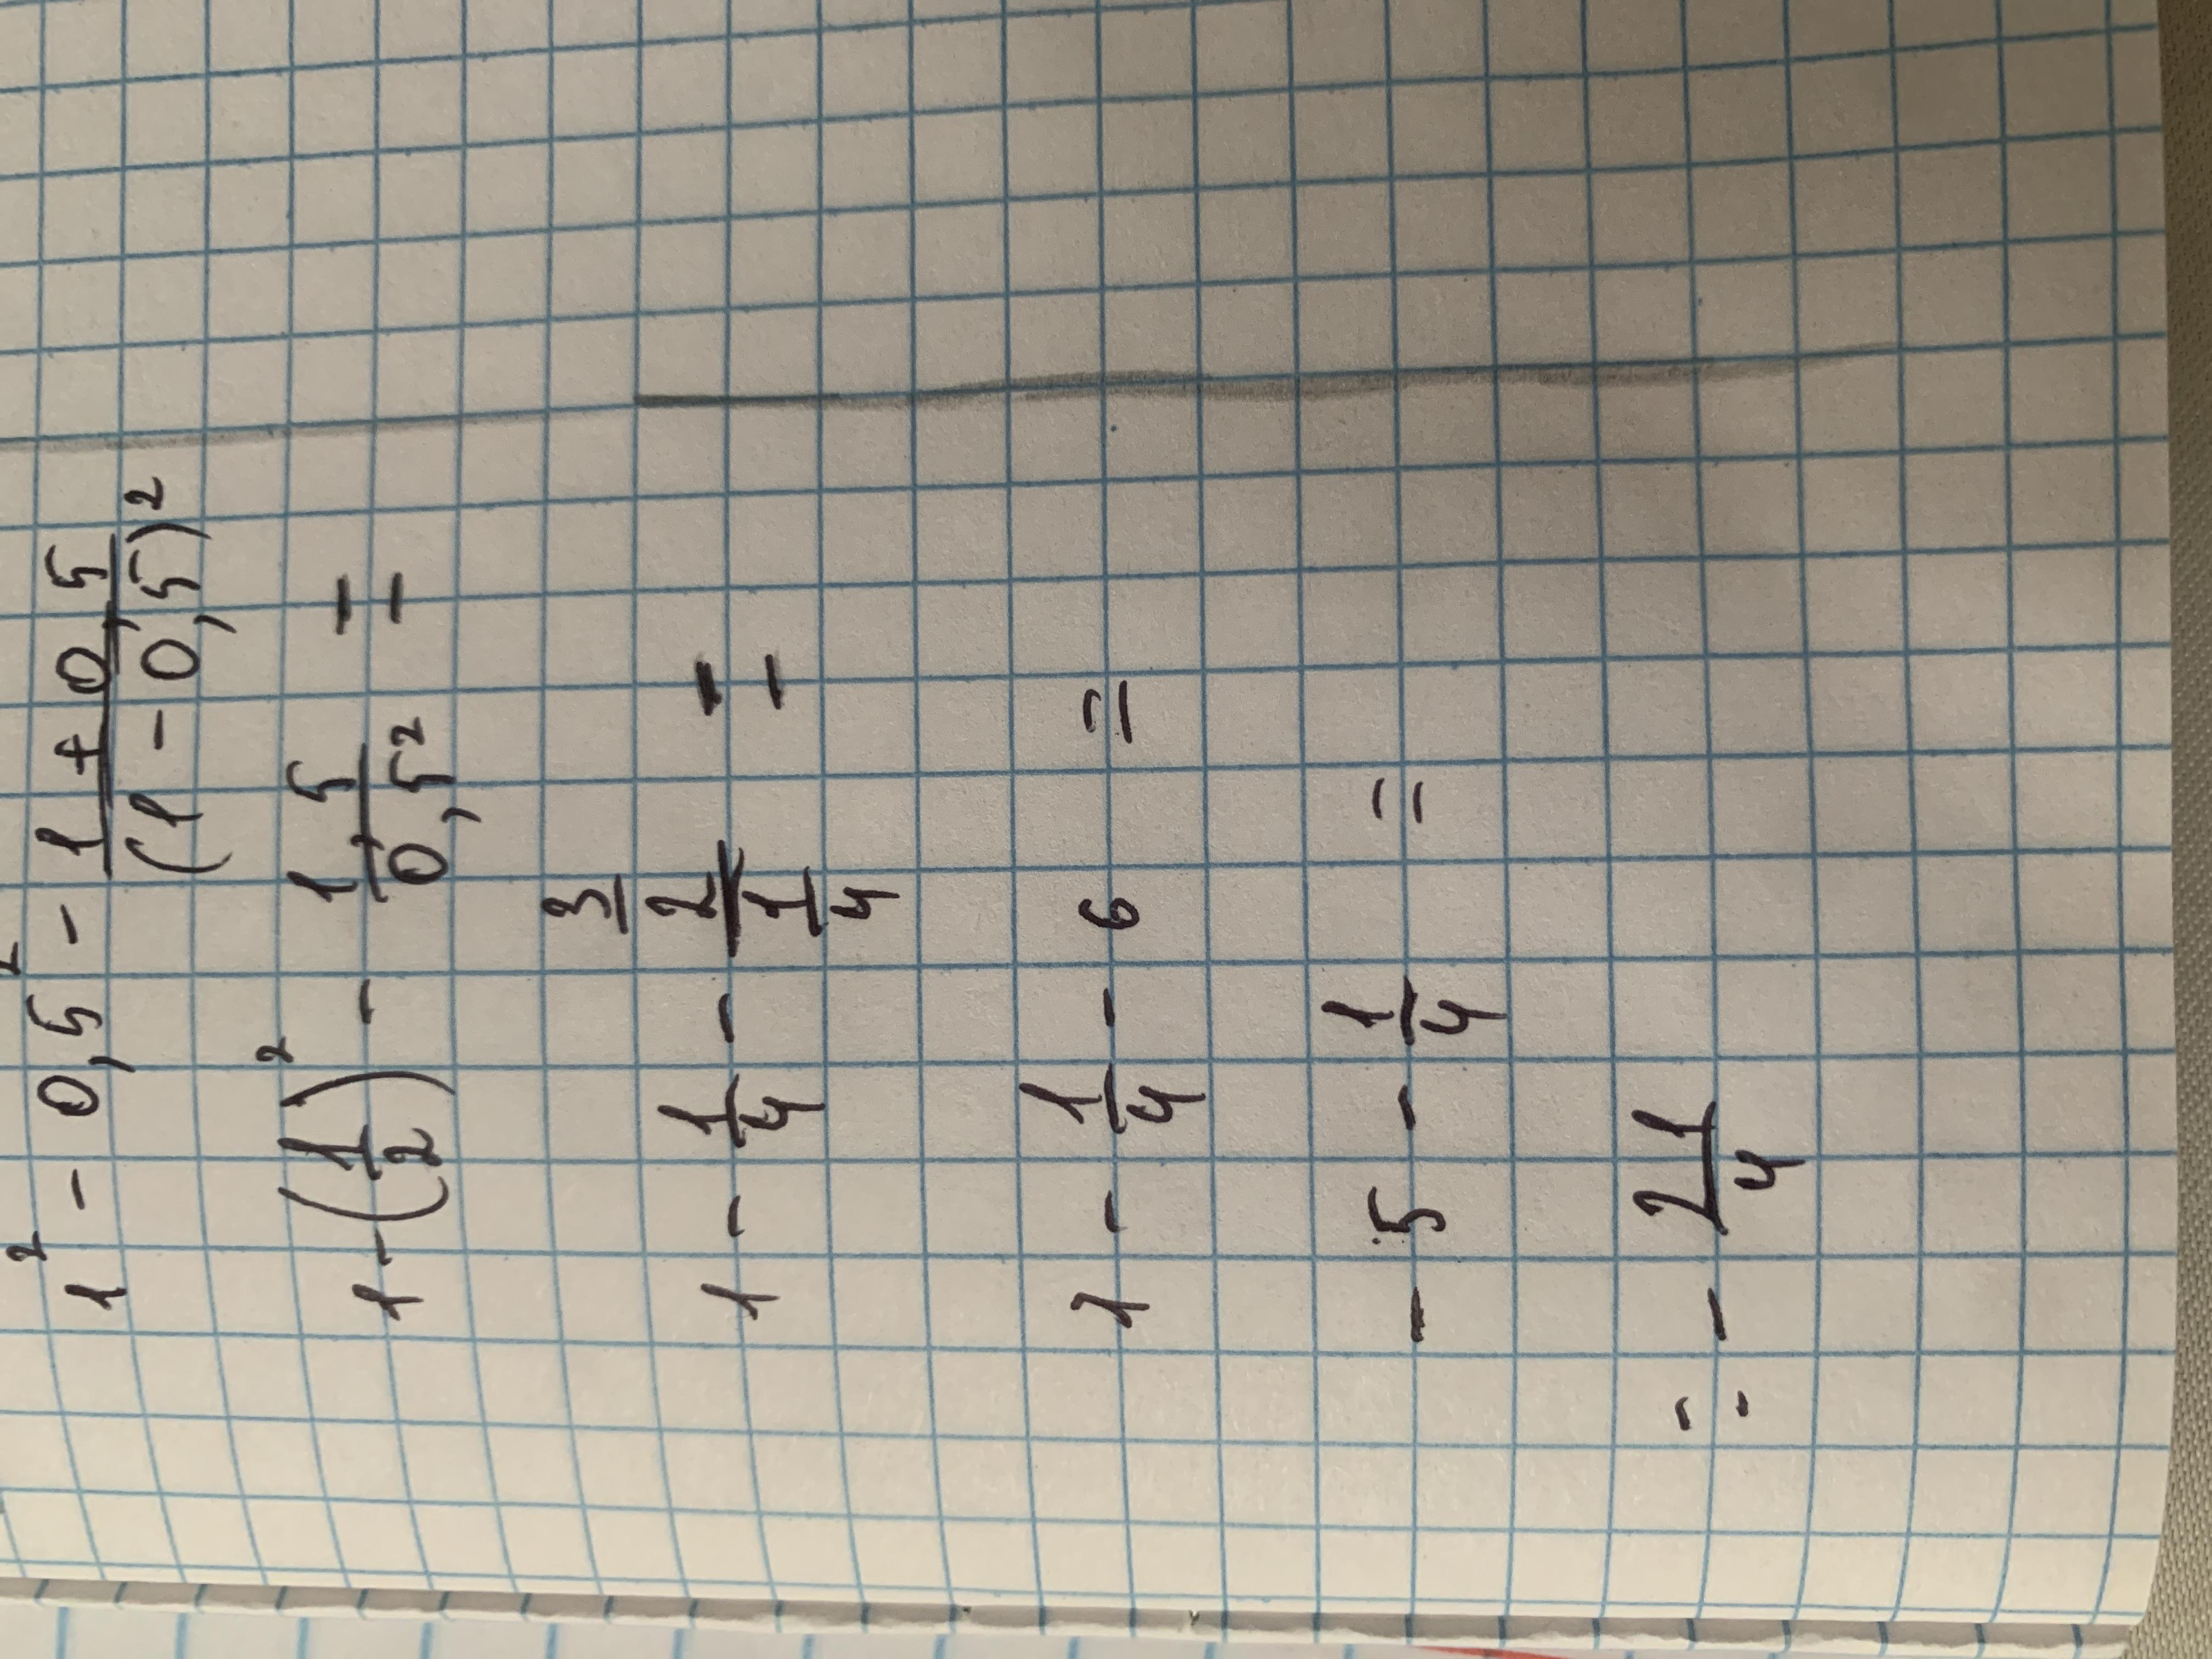 1² - 0,5² - (1 + 0,5)/(1 - 0,5)²
1 - (1/2)² - 1,5/0,5² =
1 - 1/4 - (3/2)/(1/4) =
1 - 1/4 - 6 =
- 5 - 1/4 =
= - 21/4